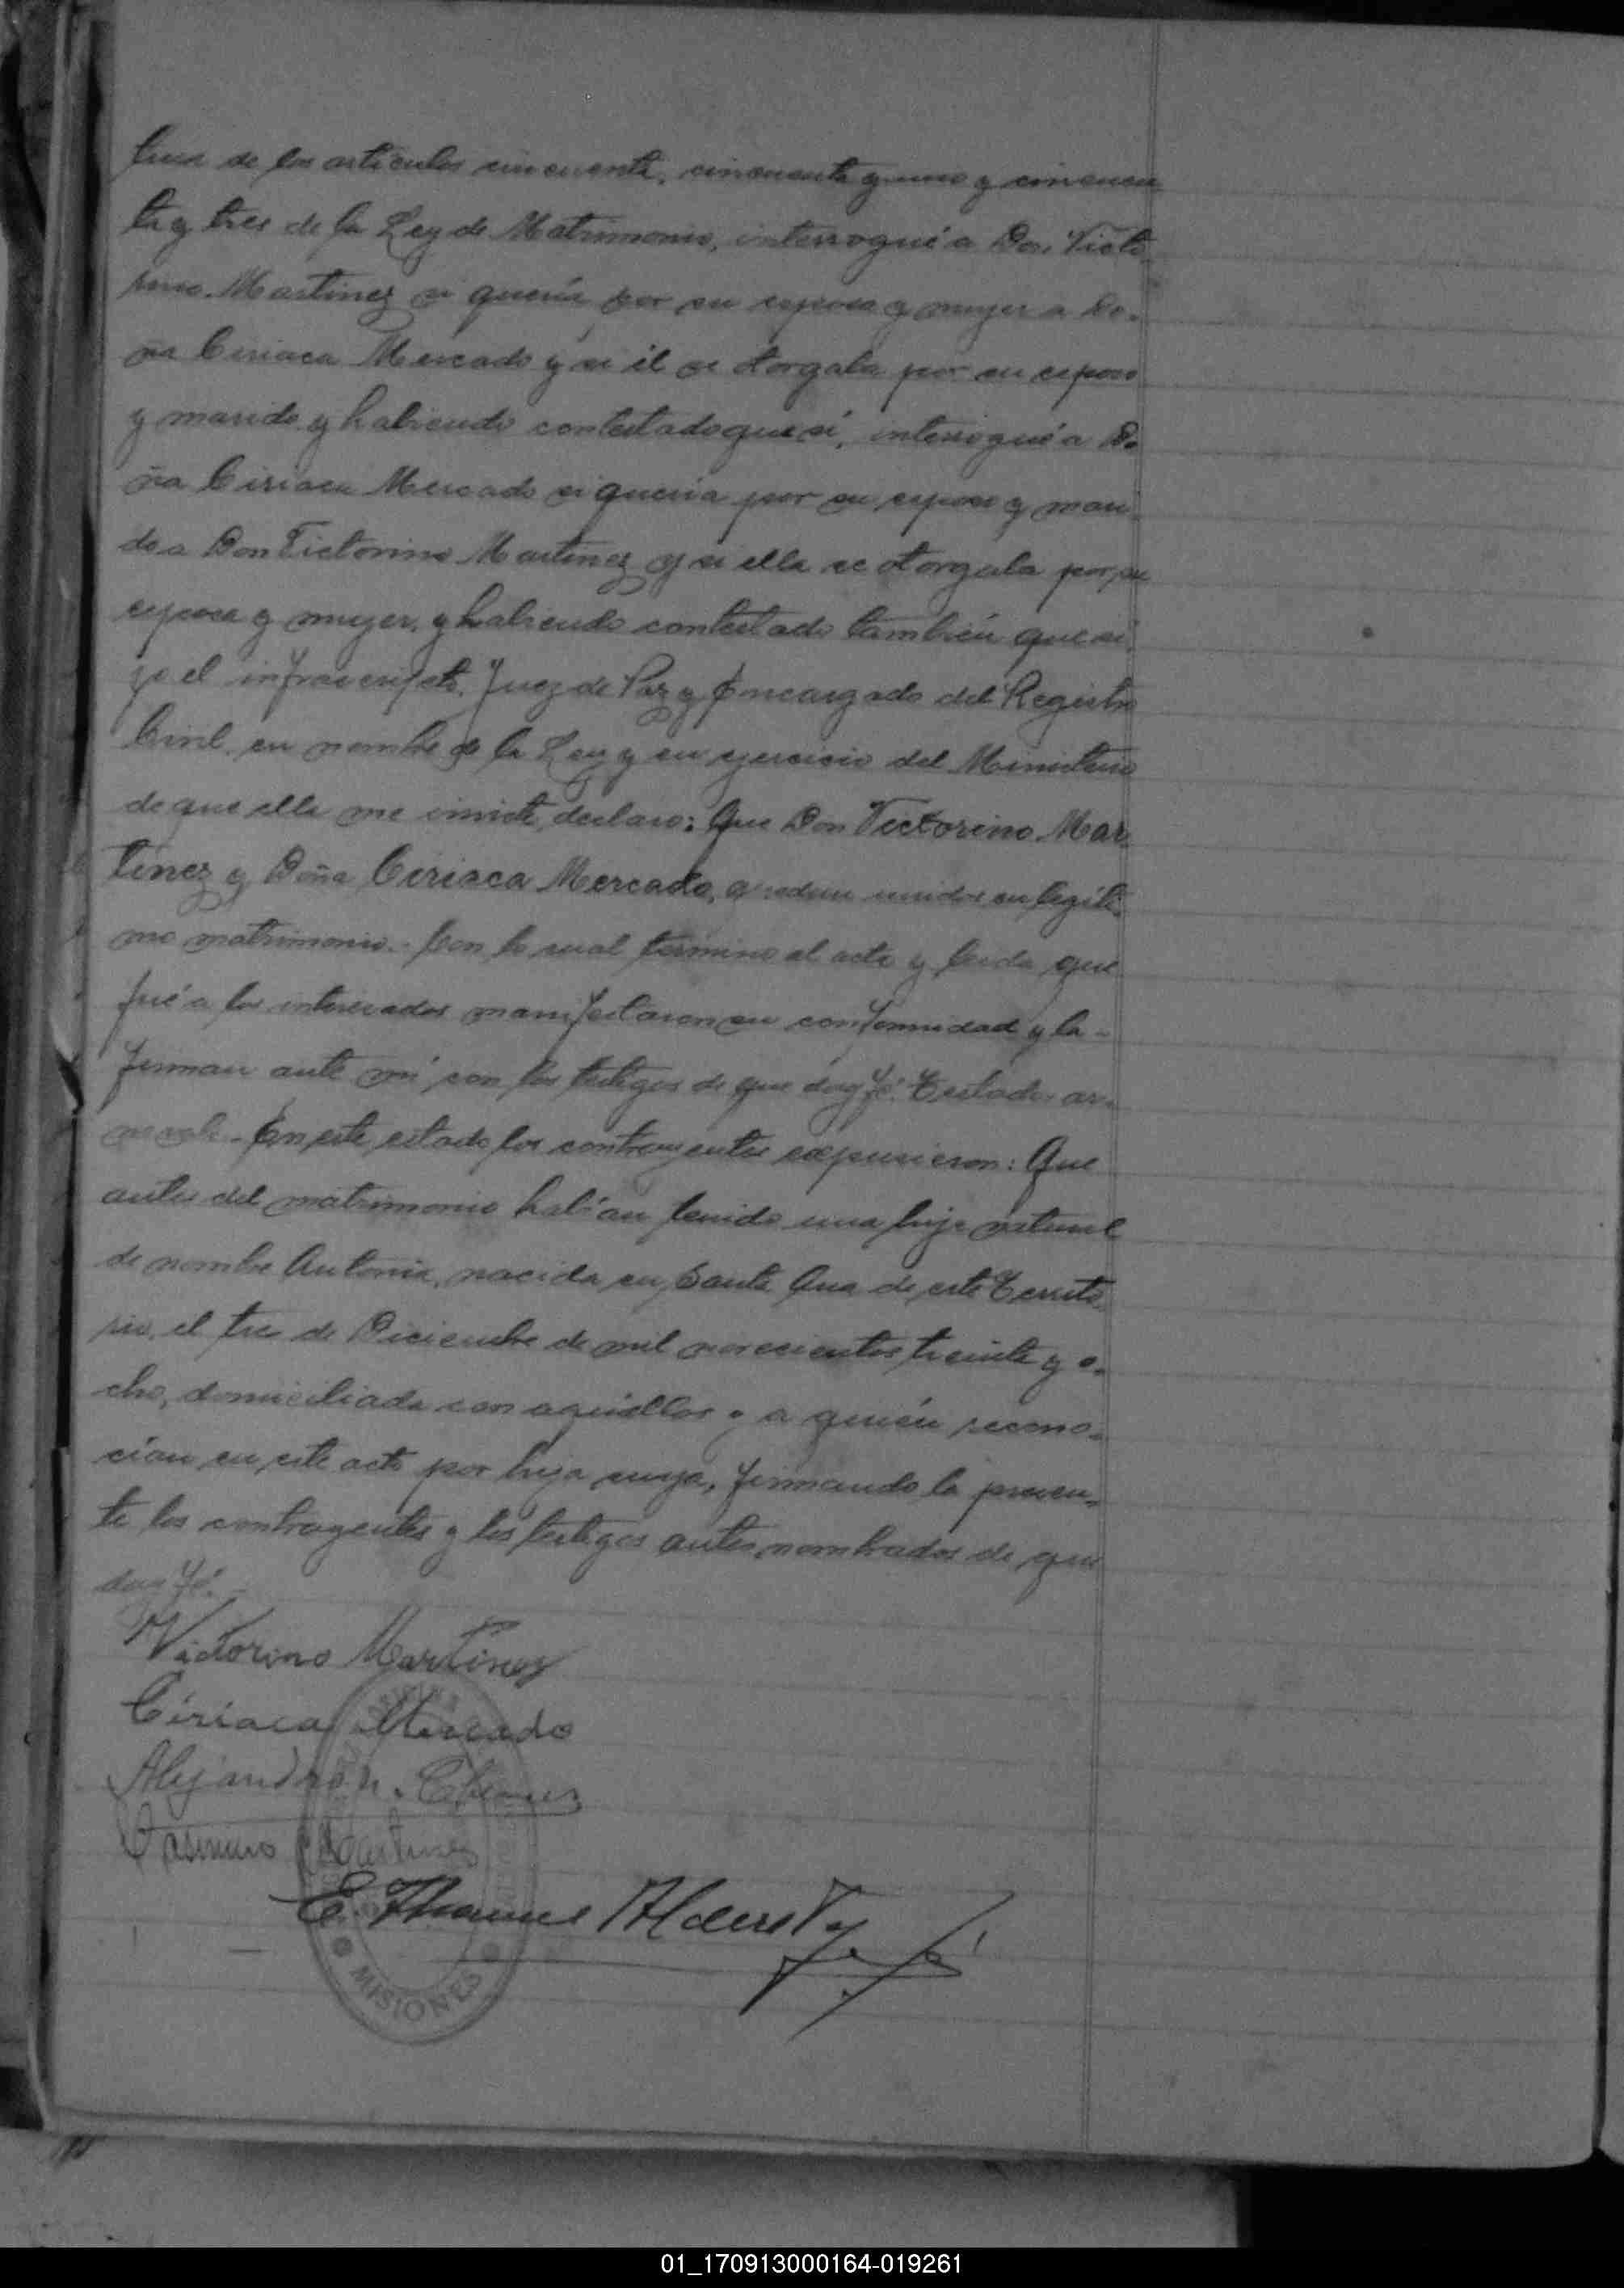 tura de los artículos cincuenta, cincuenta y uno y cincuen
ta y tres de la Ley de Matrimonio, interrogué a Don Victo
rino Martinez si quería por su esposa y mujer a Do-
ña Ciriaca Mercado y si él se otorgaba por su esposo
y marido y habiendo contestado que sí, interrogué a Do
ña Ciriaca Mercado si quería por su esposo y mari-
do a Don Victorino Martinez y si ella se otorgaba por su
esposa y mujer, y habiendo contestado también que sí,
yo el infrascripto, Juez de Paz y Encargado del Registro
Civil, en nombre de la Ley y en ejercicio del Ministerio
de que ella me inviste, declaro: Que Don Victorino Mar
tinez y Doña Ciriaca Mercado, quedan unidos en legíti-
mo matrimonio.- Con lo cual termino el acto y leida que
fué a los interesados manifestaron su conformidad y la-
firman ante mí con los testigos de que doy fé. Testado:
no vale.- En este estado los contrayentes expusieron: Que
antes del matrimonio habían tenido una hija natural
de nombre Antonia, nacida en Santa Ana de este Territo-
rio, el tres de Diciembre de mil novecientos treinta y o-
cho, domiciliada con aquellos y a quién recono-
cían en este acto por hija suya, firmando la presen-
te los contrayentes y los testigos antes nombrados de que
doy fé.-
Victorino Martinez
Ciriaca Mercado
Alejandro
Casimiro Martinez
E.
MISIONES
01_170913000164-019261